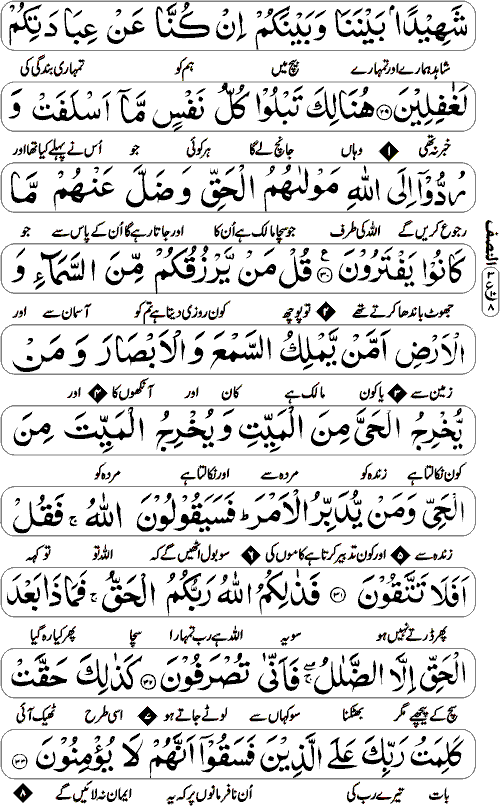 شَهِيْدًاۢ بَيْنَنَا وَبَيْنَكُمْ اِنْ كُنَّا عَنْ عِبَادَتِكُمْ
شاہد ہمارے اور تمہارے بیچ میں ہم کو تمہاری بندگی کی
لَغٰفِلِيْنَ ﴿۲۹﴾ هُنَالِكَ تَبْلُوْا كُلُّ نَفْسٍ مَّاۤ اَسْلَفَتْ وَ
خبر نہ تھی ۱ وہاں جانچ لے گا ہر کوئی جو اُس نے پہلے کیا تھا اور
رُدُّوْۤا اِلَى اللّٰهِ مَوْلٰىهُمُ الْحَقِّ وَضَلَّ عَنْهُمْ مَّا
رجوع کریں گے اللہ کی طرف جو سچا مالک ہے اُن کا اور جاتا رہے گا اُن کے پاس سے جو
كَانُوْا يَفْتَرُوْنَ ﴿۳۰﴾ ع قُلْ مَنْ يَّرْزُقُكُمْ مِّنَ السَّمَآءِ وَ
جھوٹ باندھا کرتے تھے ۲ تو پوچھ کون روزی دیتا ہے تم کو آسمان سے اور
الْاَرْضِ اَمَّنْ يَّمْلِكُ السَّمْعَ وَالْاَبْصَارَ وَمَنْ
زمین سے ۳ یا کون مالک ہے کان اور آنکھوں کا ۴ اور
يُّخْرِجُ الْحَىَّ مِنَ الْمَيِّتِ وَيُخْرِجُ الْمَيِّتَ مِنَ
کون نکالتا ہے زندہ کو مردہ سے اور نکالتا ہے مردہ کو
الْحَىِّ وَمَنْ يُّدَبِّرُ الْاَمْرَ ؕ فَسَيَقُوْلُوْنَ اللّٰهُ ۚ فَقُلْ
زندہ سے ۵ اور کون تدبیر کرتا ہے کاموں کی ۶ سو بول اٹھیں گے کہ اللہ تو تو کہہ
اَفَلَا تَتَّقُوْنَ ﴿۳۱﴾ فَذٰلِكُمُ اللّٰهُ رَبُّكُمُ الْحَقُّ ۚ فَمَاذَا بَعْدَ
پھر ڈرتے نہیں ہو سو یہ اللہ ہے رب تمہارا سچا پھر کیا رہ گیا
الْحَقِّ اِلَّا الضَّلٰلُ ۖۚ فَاَنّٰى تُصْرَفُوْنَ ﴿۳۲﴾ كَذٰلِكَ حَقَّتْ
سچ کے پیچھے مگر بھٹکنا سو کہاں سے لوٹے جاتے ہو ۷ اسی طرح ٹھیک آئی
كَلِمَتُ رَبِّكَ عَلَى الَّذِيْنَ فَسَقُوْۤا اَنَّهُمْ لَا يُؤْمِنُوْنَ ﴿۳۳﴾
بات تیرے رب کی اُن نافرمانوں پر کہ یہ ایمان نہ لائیں گے ۸
النصف